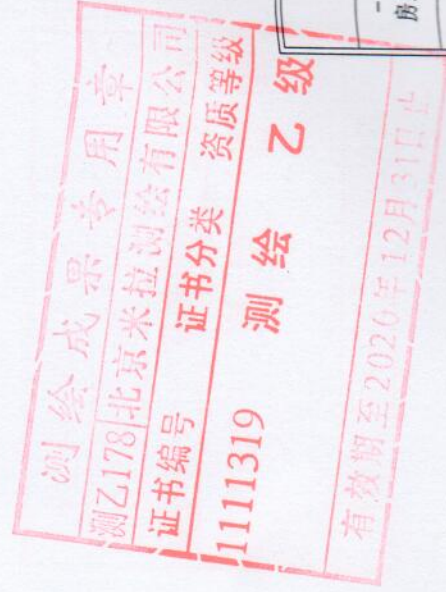 测绘成果专用章
测乙178 北京米拉测绘有限公司
证书编号 证书分类 资质等级
1111319 测绘 乙级
有效期至2026年12月31日止
房